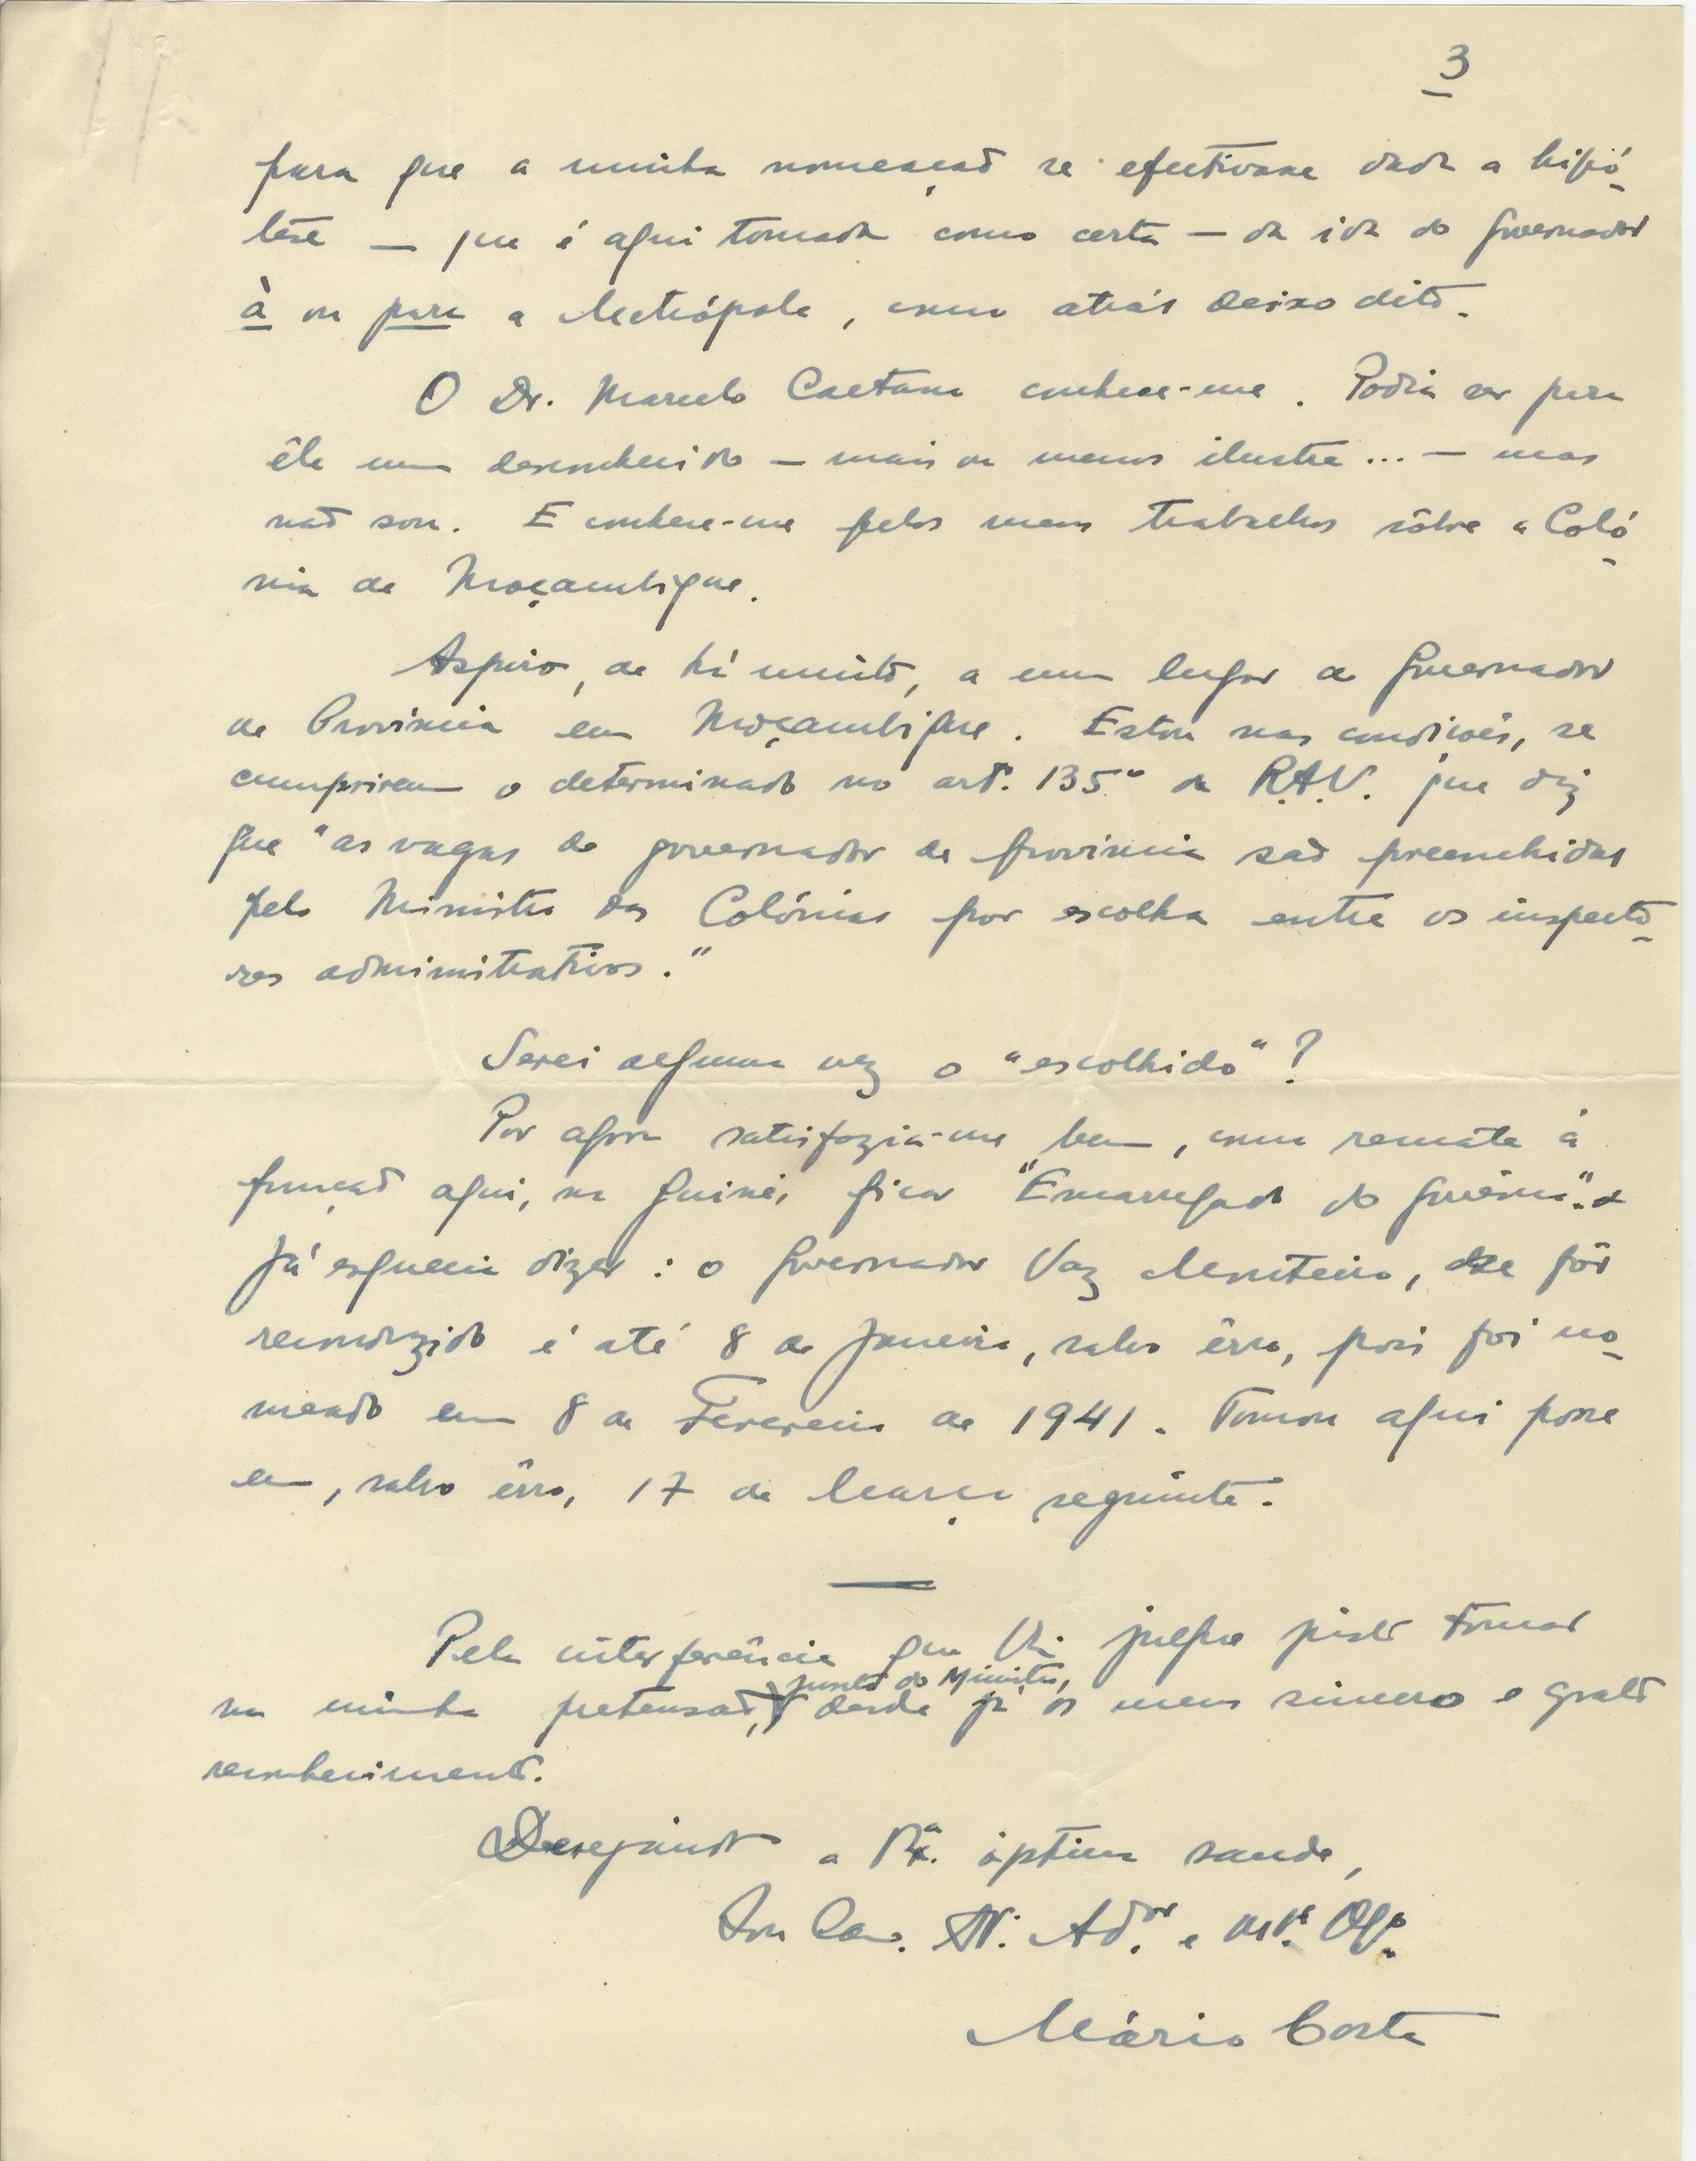 3
para que a minha nomeação se efectivasse dada a hipó-
tese — que é aqui tomada como certa — da ida do Governador
à ou para a Metrópole, como atrás deixo dito.
O Dr. Marcelo Caetano conhece-me. Podia ser para
êle um desconhecido — mais ou menos ilustre... — mas
não sou. E conhece-me pelos meus trabalhos sôbre a Coló-
nia de Moçambique.
Aspiro, de há muito, a um lugar de Governador
de Província em Moçambique. Estou nas condições, se
cumprirem o determinado no artº. 135º da R.A.U. que diz
que "as vagas de governador de província são preenchidas
pelo Ministro das Colónias por escolha entre os inspecto-
res administrativos."
Serei alguma vez o "escolhido"?
Por agora satisfazia-me bem, como remate à
função aqui, na Guiné, ficar "Encarregado do Govêrno".
Já esquecia dizer: o Governador Vaz Monteiro, se fôr
reconduzido é até 8 de Janeiro, salvo êrro, pois foi no-
meado em 8 de Fevereiro de 1941. Tomou aqui posse
em, salvo êrro, 17 de Março seguinte.
Pela interferência que V. julgue justo tomar
junto do Ministro,
na minha pretensão, desde já os meus sincero e grato
reconhecimento.
Desejando a V. óptima saude,
Sou Cam. Adºr. e mtº. Obgº.
Mário Costa